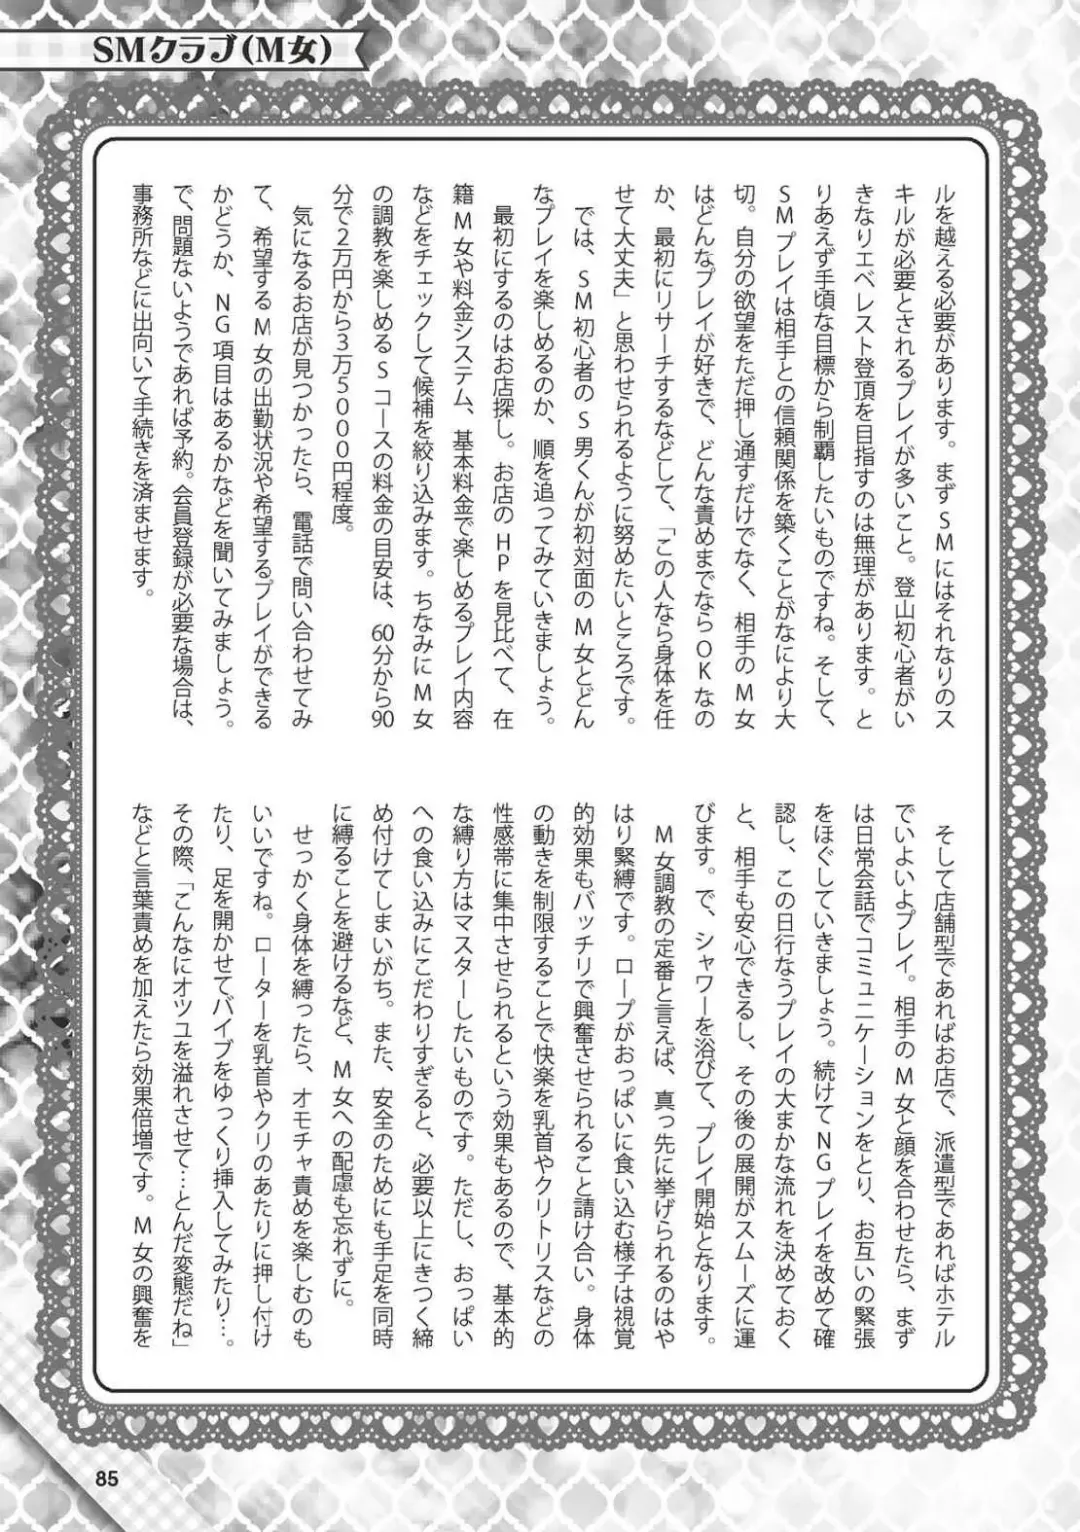 SMクラブ(M女)
ルを越える必要があります。まずSMにはそれなりのス
キルが必要とされるプレイが多いこと。登山初心者がい
きなりエベレスト登頂を目指すのは無理があります。と
りあえず手頃な目標から制覇したいものですね。そして、
SMプレイは相手との信頼関係を築くことがなにより大
切。自分の欲望をただ押し通すだけでなく、相手のM女
はどんなプレイが好きで、どんな責めまでならOKなの
か、最初にリサーチするなどして、「この人なら身体を任
せて大丈夫」と思わせられるように努めたいところです。
では、SM初心者のS男くんが初対面のM女とどん
なプレイを楽しめるのか、順を追ってみていきましょう。
最初にするのはお店探し。お店のHPを見比べて、在
籍M女や料金システム、基本料金で楽しめるプレイ内容
などをチェックして候補を絞り込みます。ちなみにM女
の調教を楽しめるSコースの料金の目安は、60分から90
分で2万円から3万5000円程度。
気になるお店が見つかったら、電話で問い合わせてみ
て、希望するM女の出勤状況や希望するプレイができる
かどうか、NG項目はあるかなどを聞いてみましょう。
で、問題ないようであれば予約。会員登録が必要な場合は、
事務所などに出向いて手続きを済ませます。
そして店舗型であればお店で、派遣型であればホテル
でいよいよプレイ。相手のM女と顔を合わせたら、まず
は日常会話でコミュニケーションをとり、お互いの緊張
をほぐしていきましょう。続けてNGプレイを改めて確
認し、この日行なうプレイの大まかな流れを決めておく
と、相手も安心できるし、その後の展開がスムーズに運
びます。で、シャワーを浴びて、プレイ開始となります。
M女調教の定番と言えば、真っ先に挙げられるのはや
はり緊縛です。ロープがおっぱいに食い込む様子は視覚
的効果もバッチリで興奮させられること請け合い。身体
の動きを制限することで快楽を乳首やクリトリスなどの
性感帯に集中させられるという効果もあるので、基本的
な縛り方はマスターしたいものです。ただし、おっぱい
への食い込みにこだわりすぎると、必要以上にきつく締
め付けてしまいがち。また、安全のためにも手足を同時
に縛ることを避けるなど、M女への配慮も忘れずに。
せっかく身体を縛ったら、オモチャ責めを楽しむのも
いいですね。ローターを乳首やクリのあたりに押し付け
たり、足を開かせてバイブをゆっくり挿入してみたり…。
その際、「こんなにオツユを溢れさせて…とんだ変態だね」
などと言葉責めを加えたら効果倍増です。M女の興奮を
85